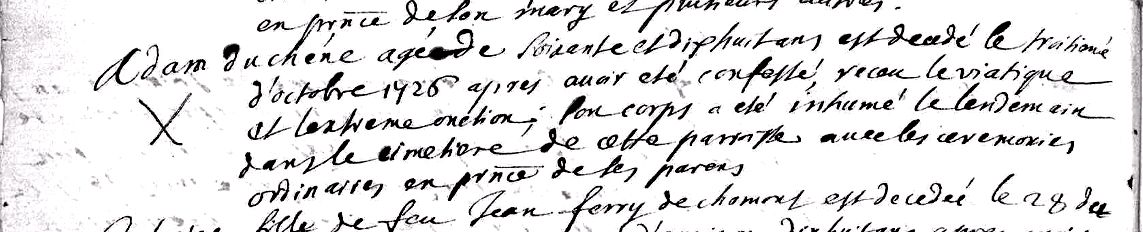 en prñce de son mary et plusieurs autres.
Adam duchéne agée de soixante et dixhuit ans est decedé le troisiéme
d'octobre 1726 apres avoir eté confessé, receu le viatique
et l'extreme onction; son corps a eté inhumé le lendemain
dans le cimetiere de cette parroisse avec les ceremonies
ordinaires en prñce de ses parens
fille de feu Jean ferry de chomont est decedeé le 28 du
dixhuit ans apres